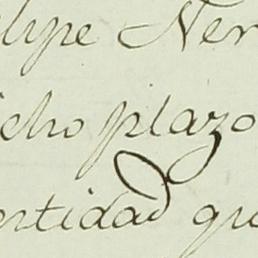 elipe Ner
icho plazo
entidad que